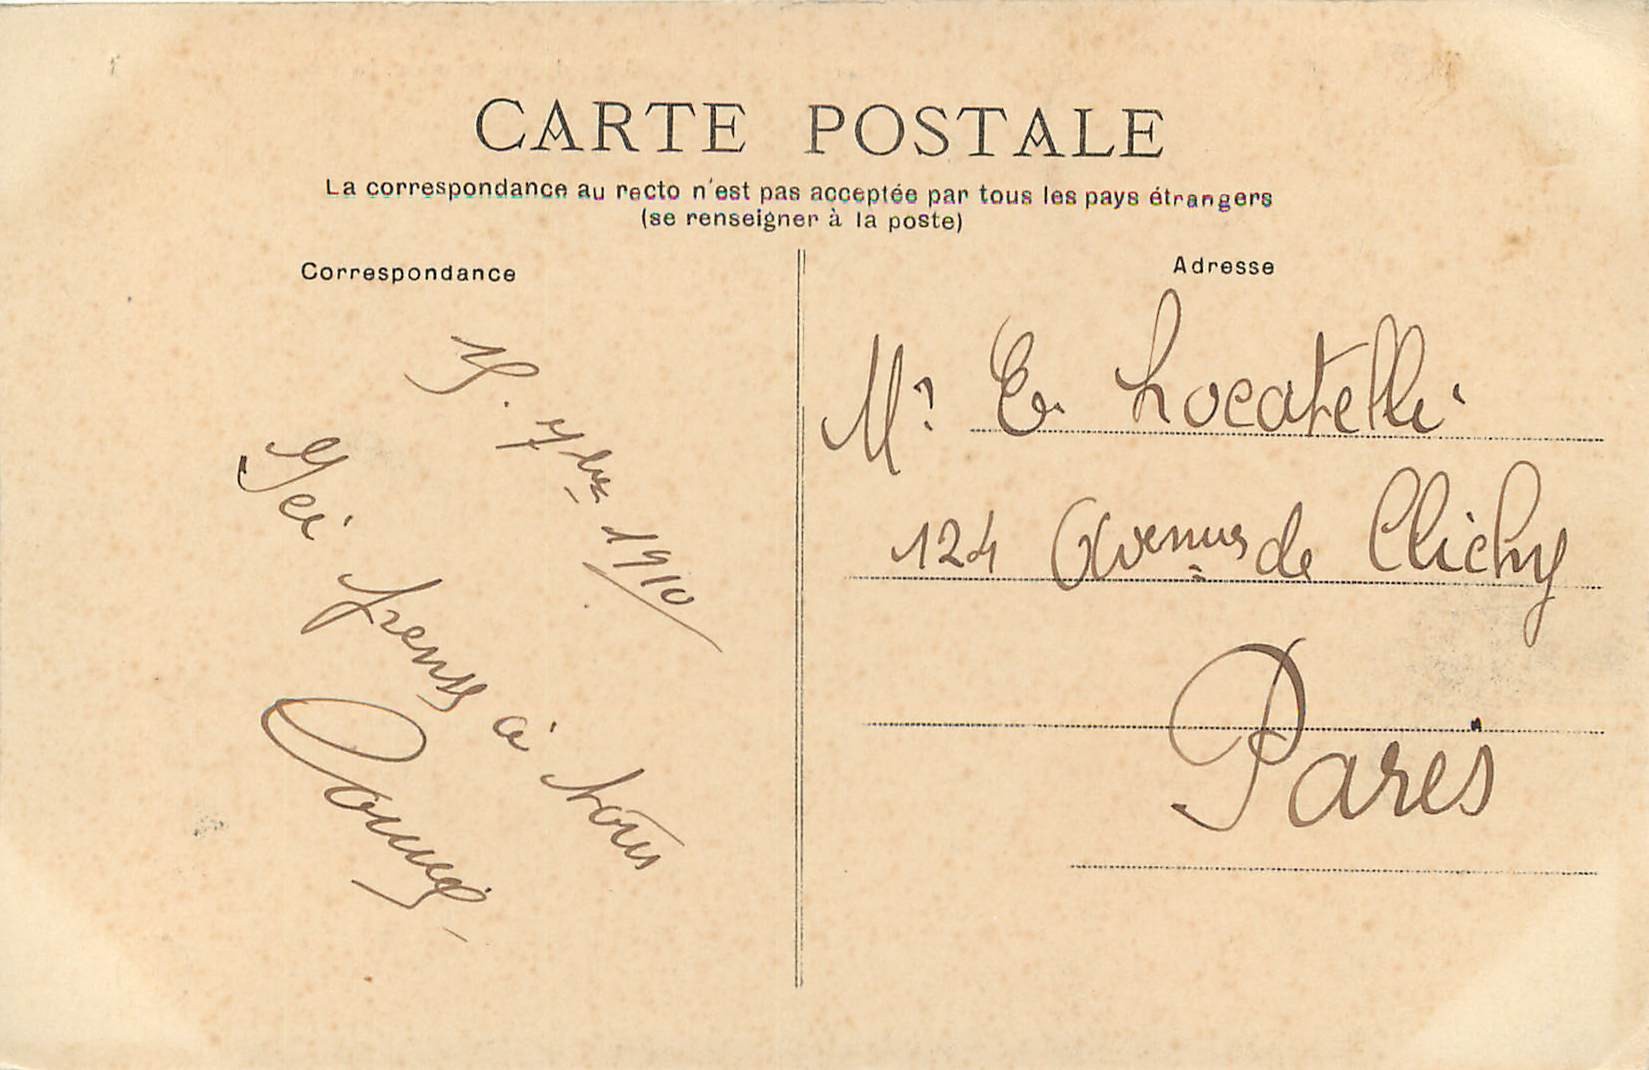 CARTE POSTALE
La correspondance au recto n'est pas acceptée par tous les pays étrangers
(se renseigner à la poste)
Correspondance
Adresse
7bre 1910
pense à tous
Mr E. Locatelli
124 Avenue de Clichy
Paris